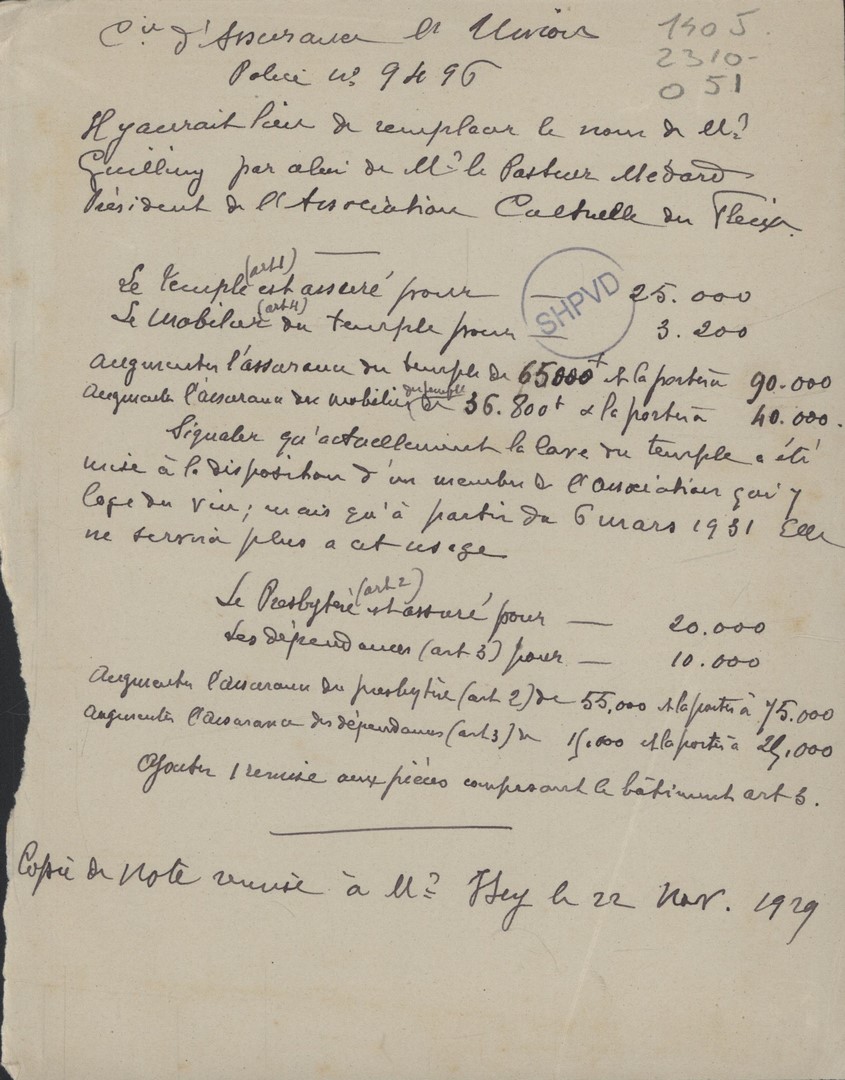 Cie d'Assurance la Union
Police no 9496
1405
2310-
051
Il y aurait lieu de remplacer le nom de Mr
par celui de Mr le Pasteur Médard
Président de l'Association Cultuelle du Fleix.
Le temple (art 1) est assuré pour — 25.000
Le mobilier (art 4) du temple pour — 3.200
SHPVD
Augmenter l'assurance du temple de 65000f et la porter à 90.000
Augmenter l'assurance du mobilier du temple de 36.800f & la porter à 40.000.
Signaler qu'actuellement la cave du temple a été
mise à la disposition d'un membre de l'association qui y
loge du vin; mais qu'à partir du 6 mars 1931 Elle
ne servira plus a cet usage
Le Presbytère (art 2) est assuré pour — 20.000
Les dépendances (art 3) pour — 10.000
Augmenter l'assurance du presbytère (art 2) de 55,000 et la porter à 75.000
Augmenter l'assurance des dépendances (art 3) de 15,000 et la porter à 25,000
Ajouter 1 remise aux pièces composant le bâtiment art 3.
Copie de Note remise à Mr le 22 Nov. 1929